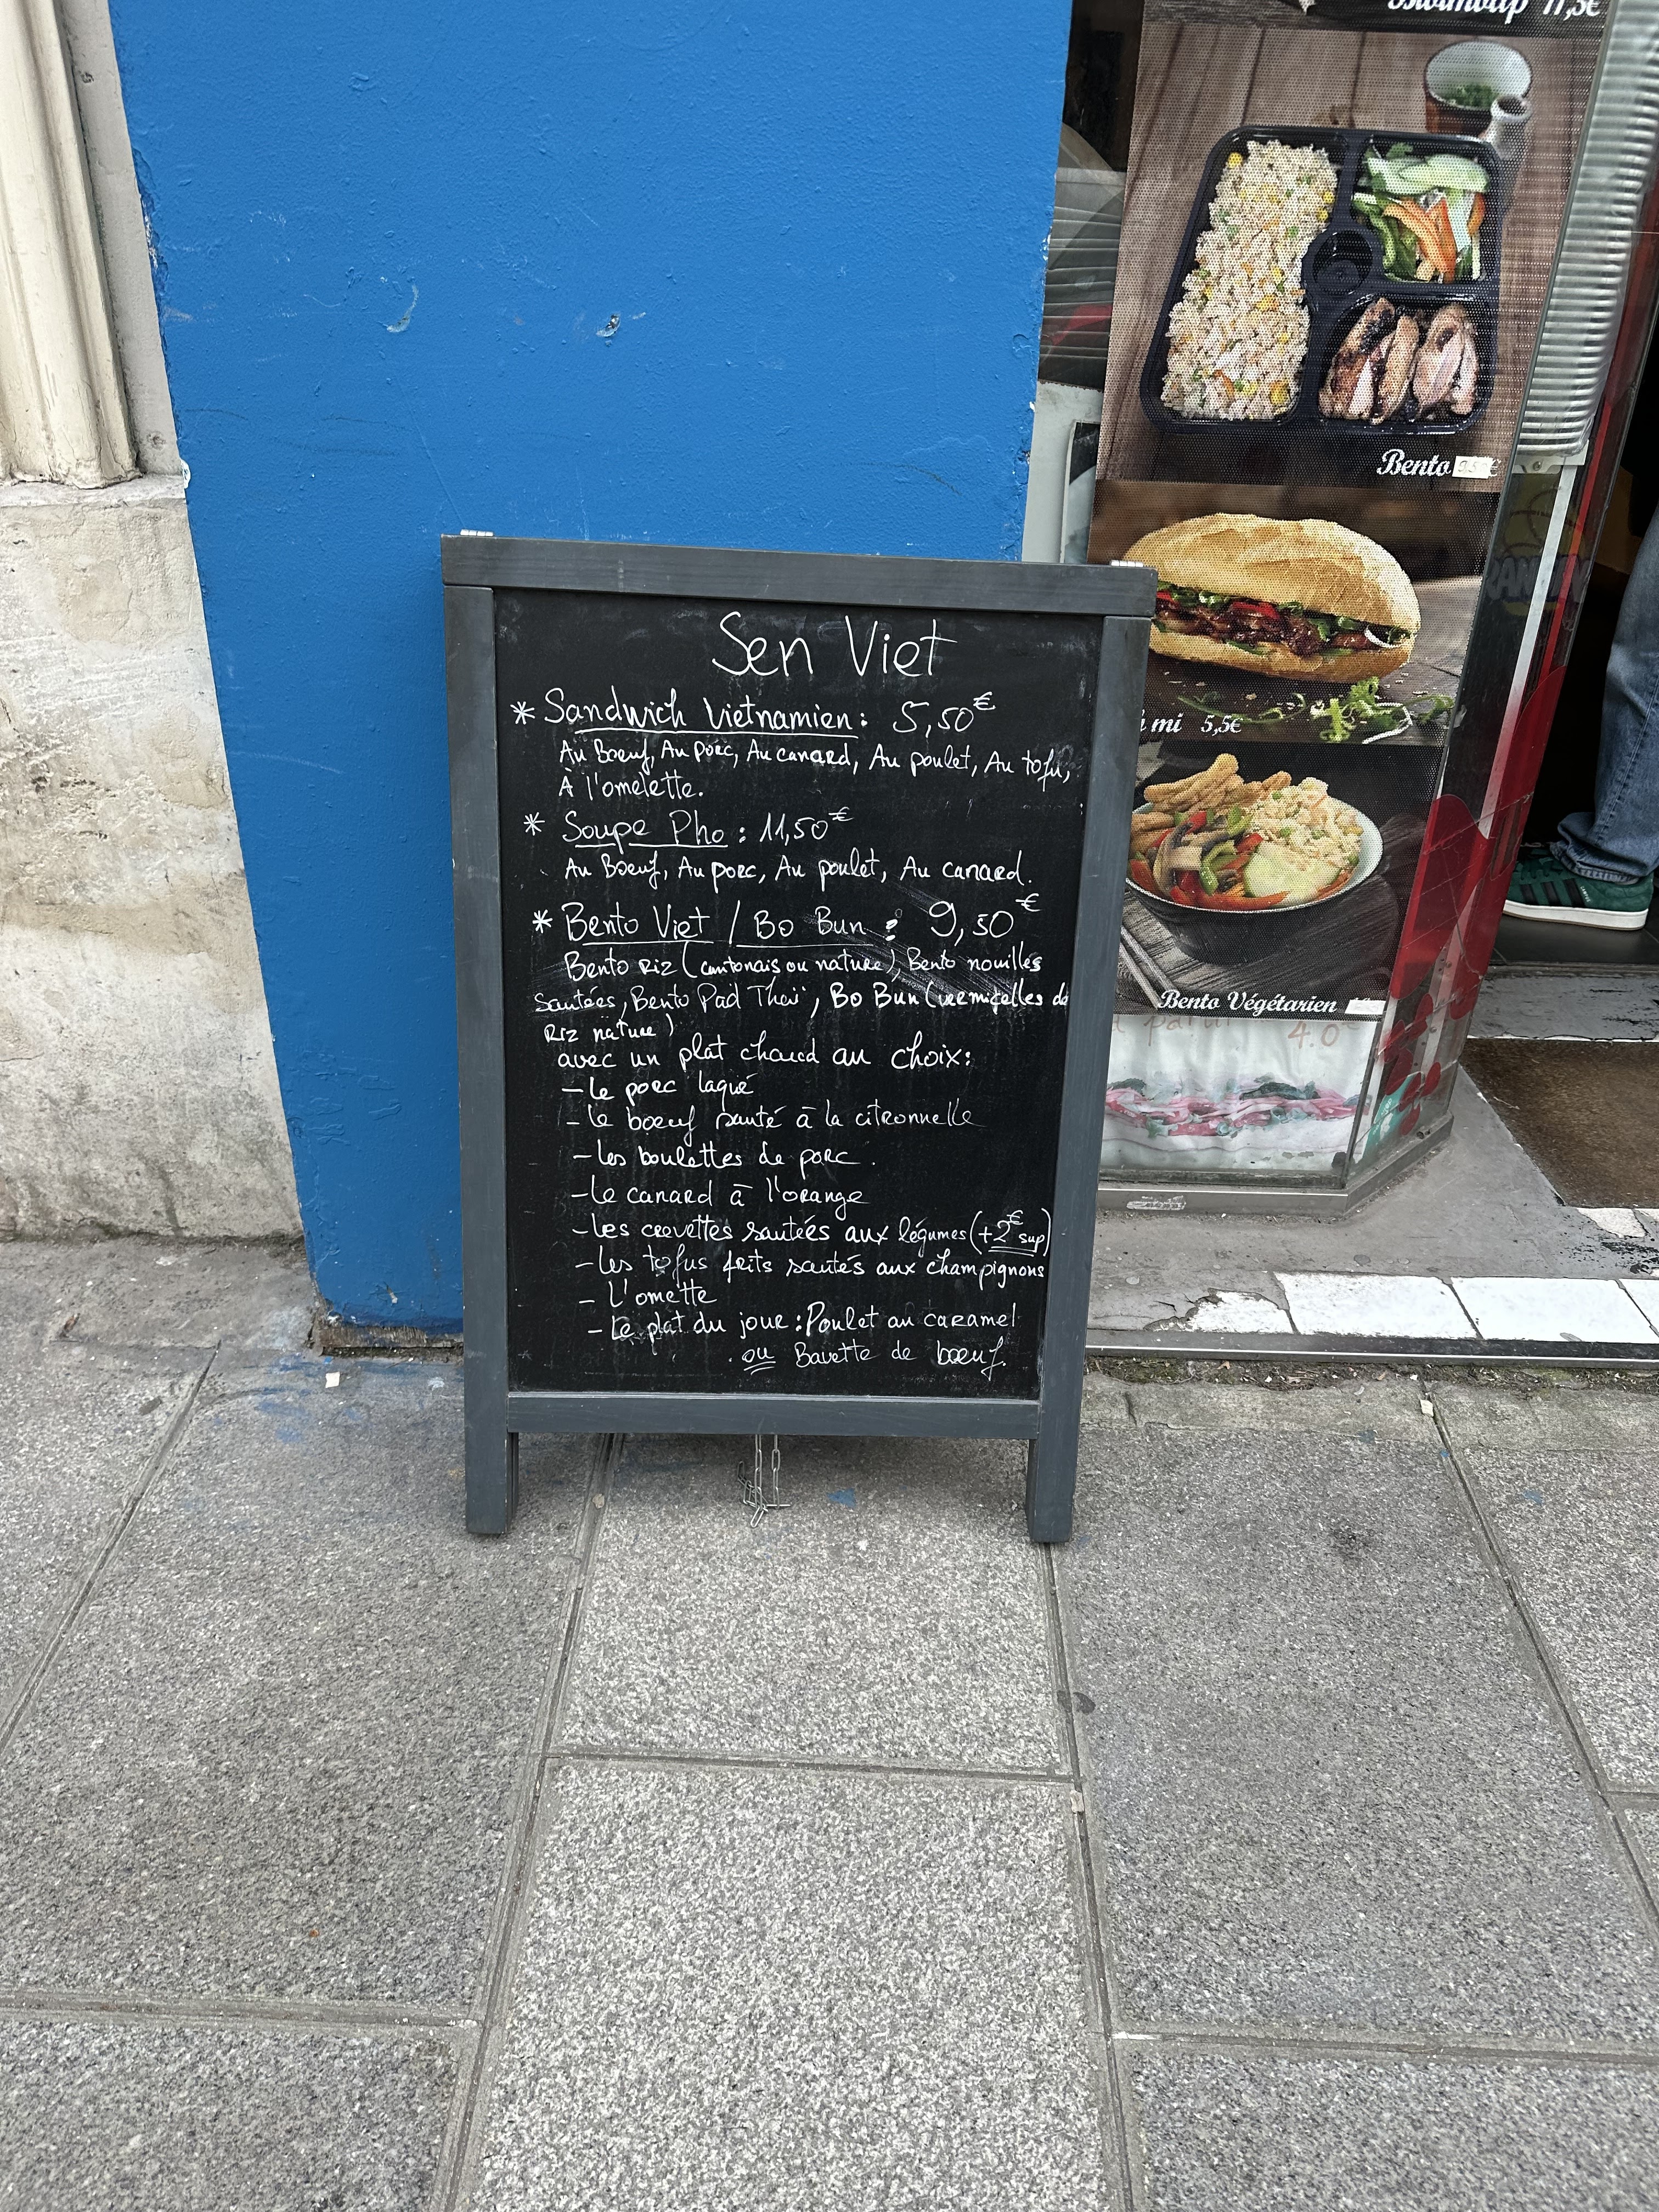 Sen Viet
* Sandwich Vietnamien : 5,50€
Au Boeuf, Au porc, Au canard, Au poulet, Au tofu,
À l'omelette.
* Soupe Pho : 11,50€
Au Boeuf, Au porc, Au poulet, Au canard.
* Bento Viet / Bo Bun : 9,50€
Bento Riz (cantonais ou nature), Bento nouilles
Sautées, Bento Pad Thaï, Bo Bun (vermicelles de
Riz nature)
avec un plat chaud au choix:
- Le porc laqué
- Le boeuf sauté à la citronnelle
- Les boulettes de porc.
- Le canard à l'orange
- Les crevettes sautées aux légumes (+2€ sup)
- Les tofus frits sautés aux champignons
- L'omette
- Le plat du jour : Poulet au caramel
ou Bavette de boeuf.
11,5€
Bento
mi 5,5€
Bento Végétarien
4.0